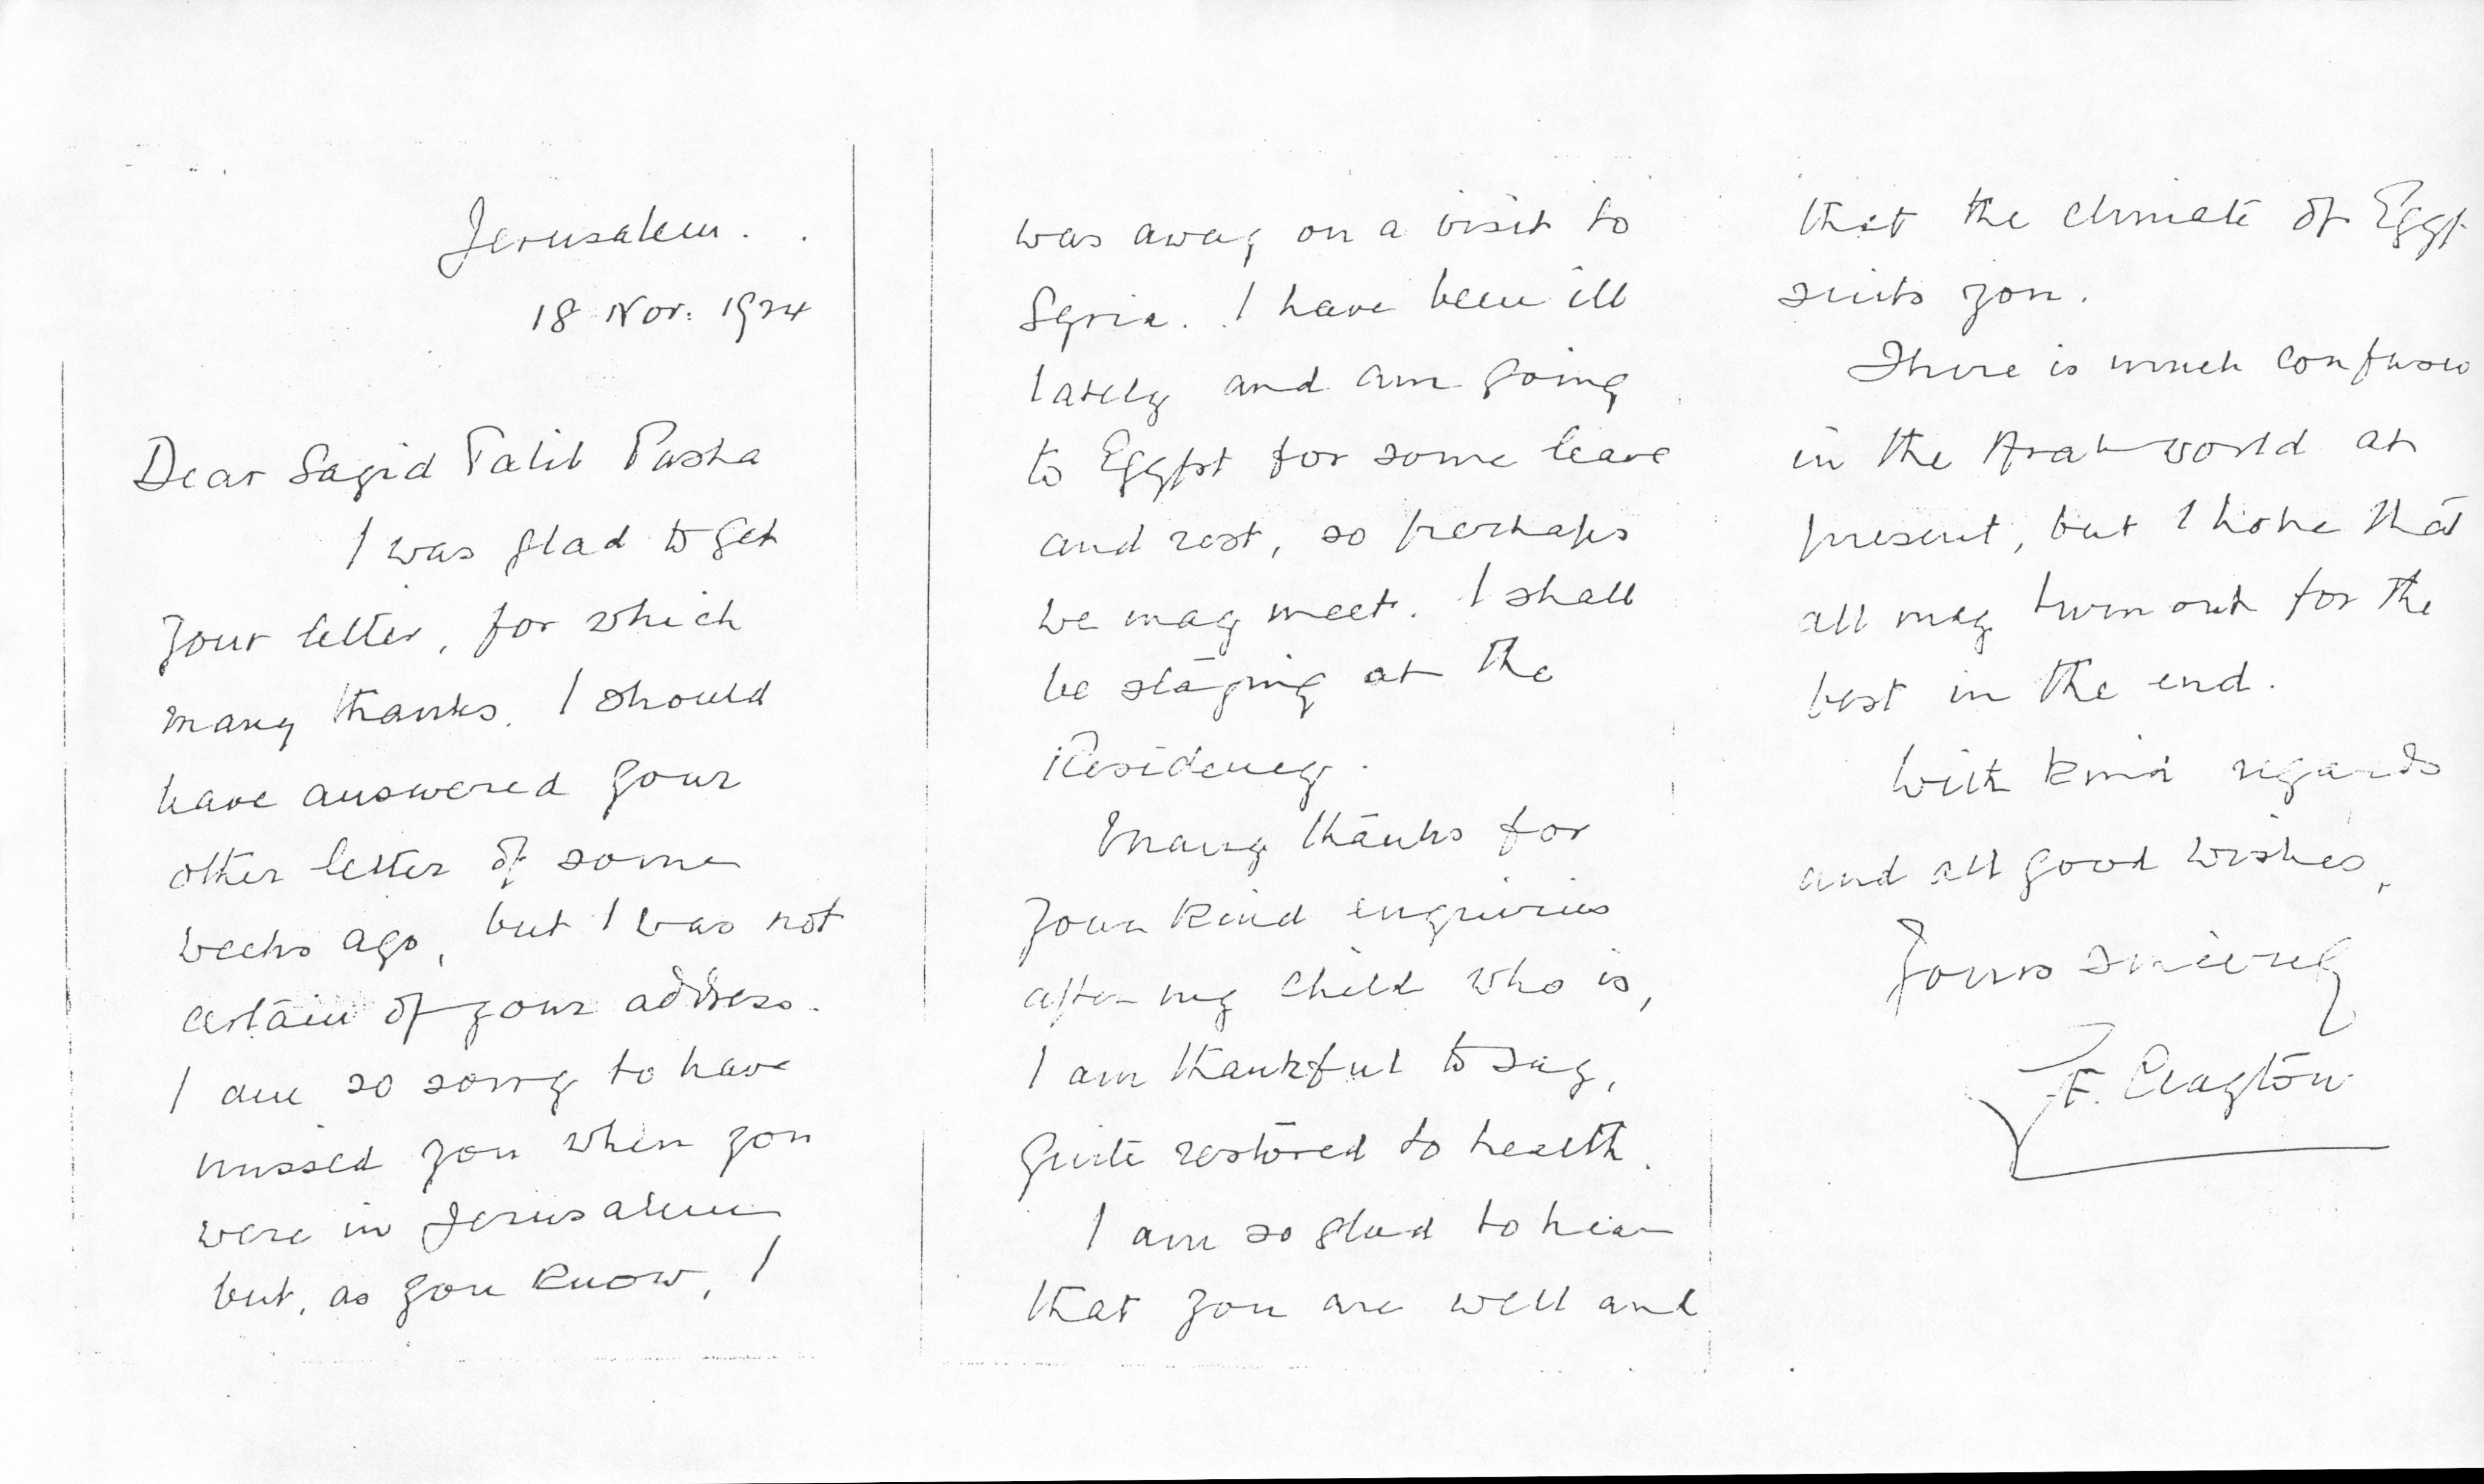 Jerusalem.
18 Nov. 1924
Dear Sayid Talib Pasha
I was glad to get
your letter, for which
many thanks. I should
have answered your
other letter of some
weeks ago, but I was not
certain of your address.
I am so sorry to have
missed you when you
were in Jerusalem
but, as you know, I
was away on a visit to
Syria. I have been ill
lately and am going
to Egypt for some leave
and rest, so perhaps
we may meet. I shall
be staying at the
Residency.
Many thanks for
your kind enquiries
after my child who is,
I am thankful to say,
quite restored to health.
I am so glad to hear
that you are well and
that the climate of Egypt
suits you.
There is much confusio
in the Arab world at
present, but I hope that
all may turn out for the
best in the end.
With kind regards
and all good wishes,
Yours sincerely
F. Clayton